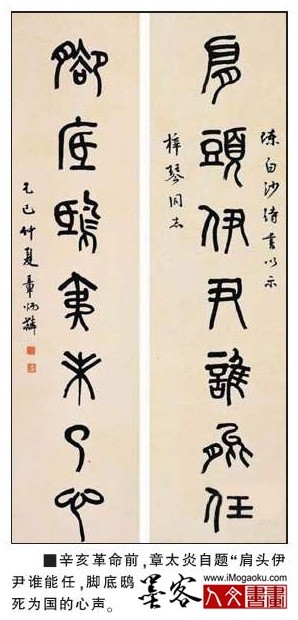 陳白沙詩書以示
肩頭伊尹誰能任
梓琴同志
腳底鴟夷未了心
乙巳仲夏章炳麟
■辛亥革命前,章太炎自题“肩头伊
尹谁能任,脚底鸱
死为国的心声。
墨客
www.iMogaoku.com
人文書畫